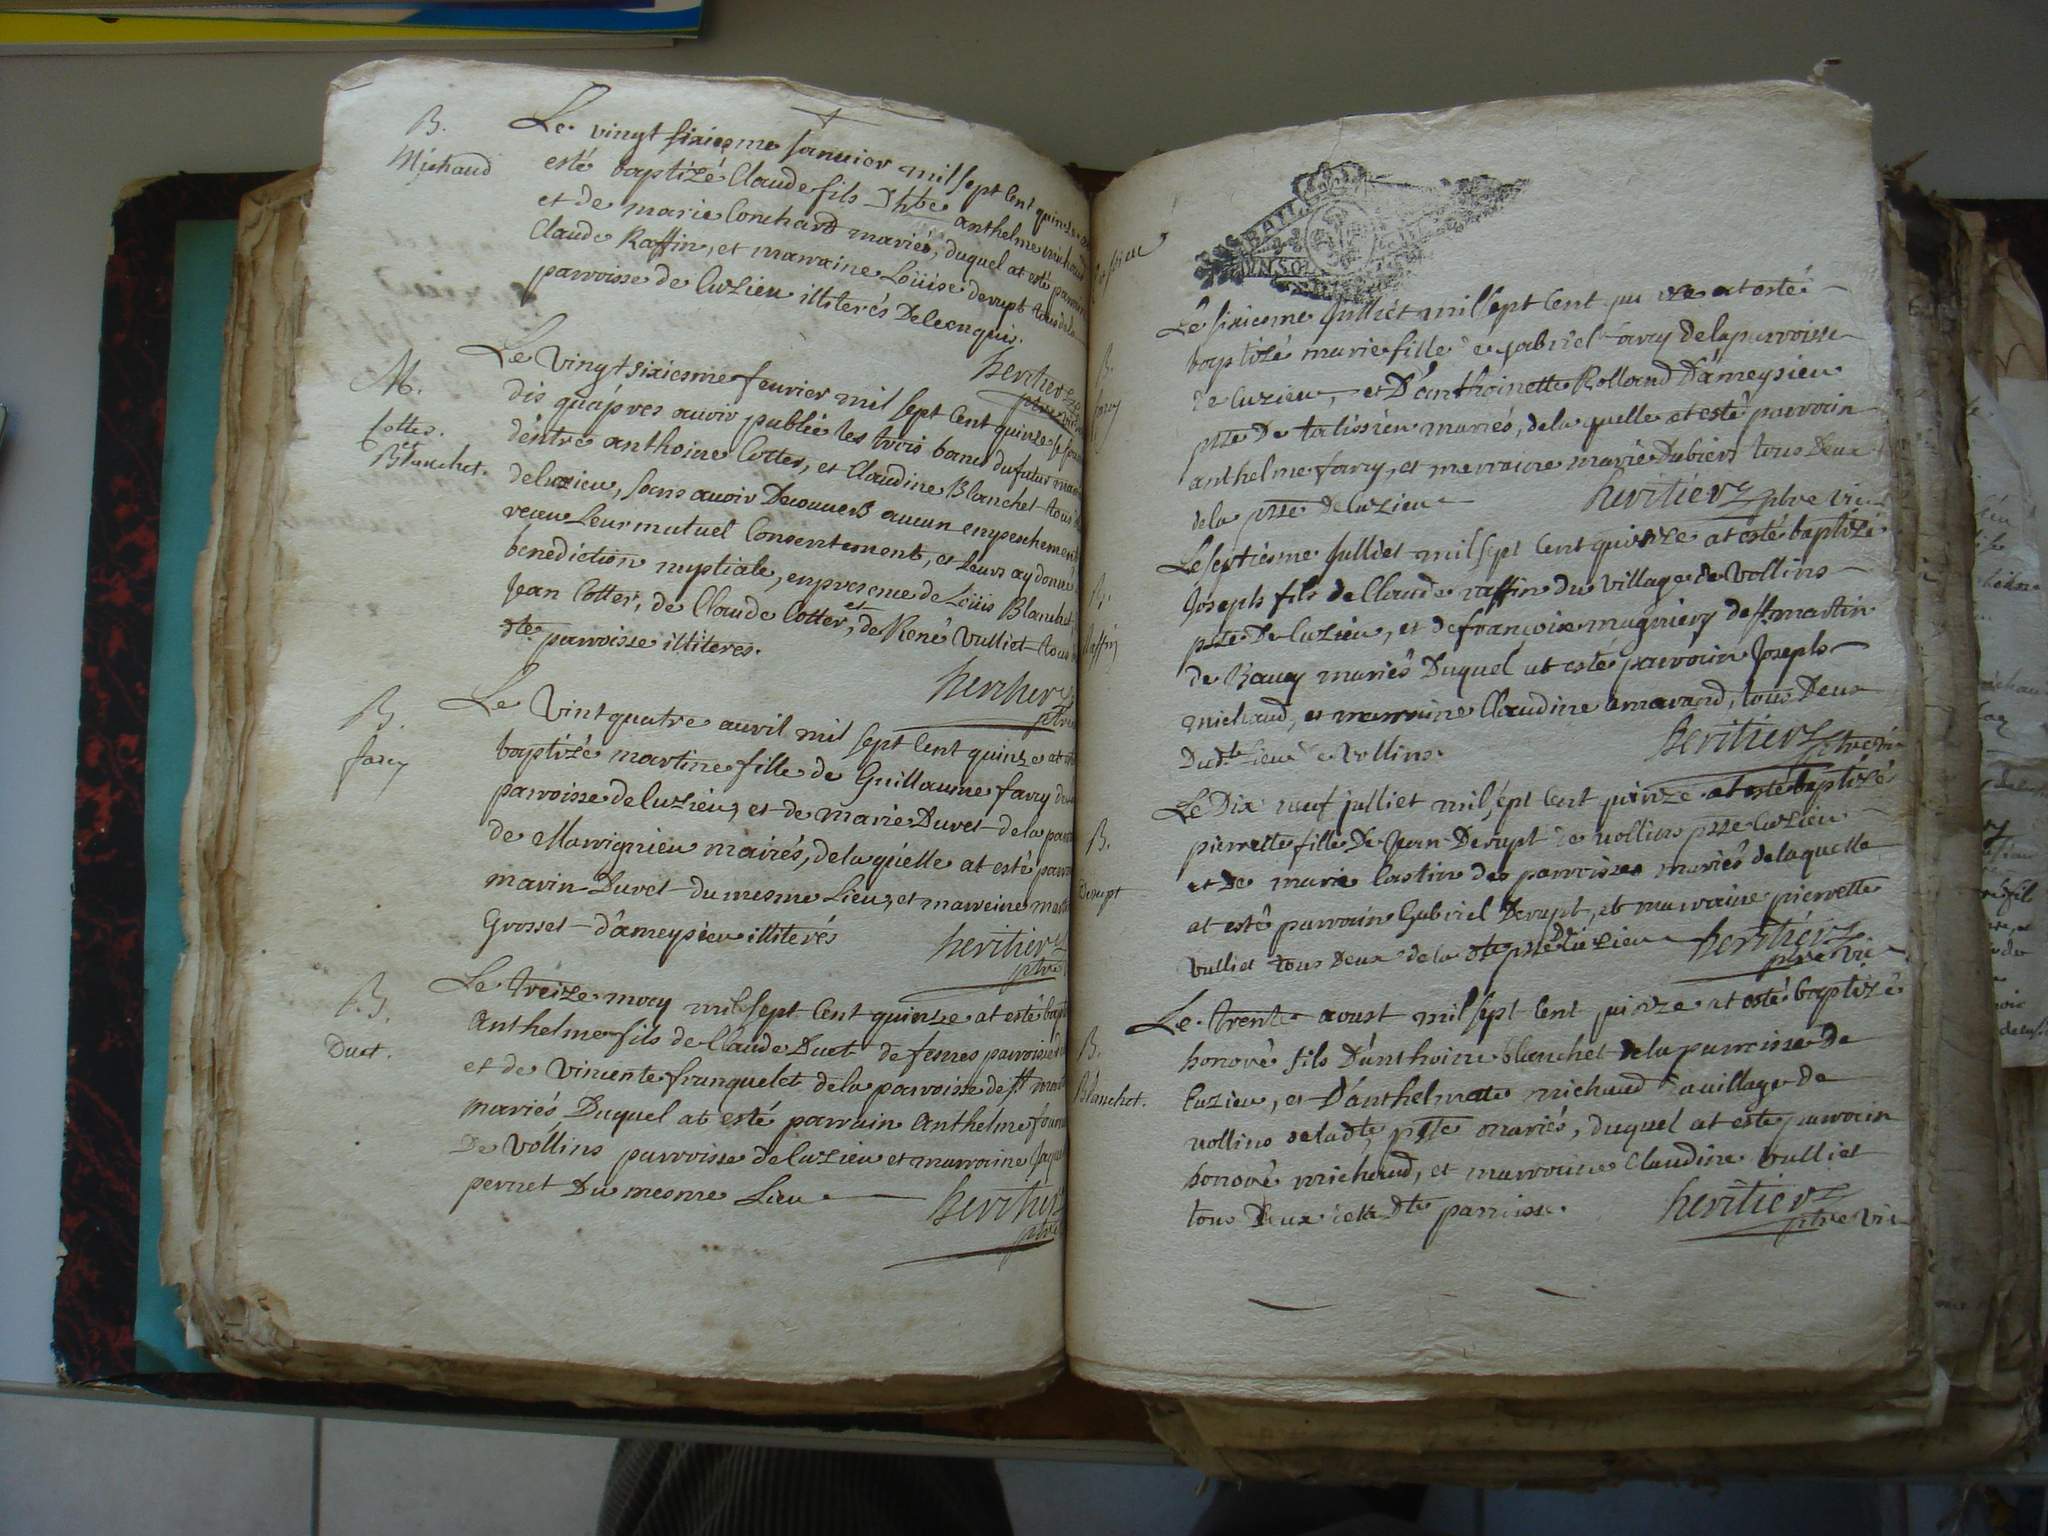 B.
Michaud
Le vingt sixiesme janvier mil sept cent quinze
esté baptizé Claude fils D'hble anthelme michaud
et de marie Conchard mariés, duquel at esté parrain
Claude Raffin, et marraine Loüise derupt tous de la
parroisse de Cuzieu illiterés De ce enquis.
heritier
ptre
M.
Cotter.
et
Blanchet.
Le Vingt sixiesme feurier mil sept Cent quinze Je sous
dis qu'apres auoir publié les trois bans du futur maria
d'entre anthoine Cotter, et Claudine Blanchet tous
de Cuzieu, sans auoir Decouuert aucun empeschement
receu Leur mutuel Consentement, et Leurs ay donné
benediction nuptiale, en presence de Loüis Blanchet,
Jean Cotter, de Claude Cotter, et de René Vulliet tous
dte parroisse illiteres.
heritier
ptre
B.
farry
Le Vint quatre auril mil sept Cent quinze at esté
baptizée martine fille de Guillaume farry de
parroisse de Cuzieu, et de marie Duret de la parr
de Marrignieu mairés, de laquelle at esté parra
marin Duret du mesme Lieu, et marreine mart
Grosset d'ameysieu illiterés
heritier
ptre
B.
Duet.
Le treize may mil sept Cent quinze at esté bapt
Anthelme fils de Claude Duet de
et de Vincente franquelet de la paroisse de St mart
mariés Duquel at esté parrain Anthelme
De Vollins parroisse de Cuzieu et marraine Jaque
pernet Du mesme Lieu
heritier
ptre
B.
farry
Le sixiesme Julliet mil sept Cent quinze at esté
baptizé marie fille de gabriel farry de la parroisse
de Cuzieu, et D'anthoinette Rolland D'ameysieu
psse De talissieu mariés, de laquelle at esté parrain
anthelme farry, et merraine marie Dubiers tous Deux
de la psse de Cuzieu
heritier ptre vic
B.
Raffin
Le septiesme Julliet mil sept Cent quinze at esté baptizé
Joseph fils de Claude raffin du village de Vollins
psse De Cuzieu, et de françoise mugniery de St martin
de Bauey mariés Duquel at esté parrain Joseph
michaud, et marraine Claudine amarand, tous Deux
Dudt Lieu de Vollins.
heritier
ptre vic
B.
Derupt
Le Dix neuf julliet mil sept Cent quinze at esté baptizée
pierrette fille De Jean Derupt de uollins psse Cuzieu
et De marie Castin des parroisses mariés de laquelle
at esté parrain Gabriel Derupt, et marraine pierrette
Vulliet tous Deux de la dte psse De Cuzieu
heritier
ptre vic
B.
Blanchet.
Le trente aoust mil sept Cent quinze at esté baptizé
honoré fils D'anthoine blanchet de la parroisse De
Cuzieu, et D'anthelmette michaud du uillage De
uollins de la dte psse mariés, duquel at esté parrain
honoré michaud, et marraine Claudine Vulliet
tous Deux de la Dte parroisse.
heritier
ptre vic